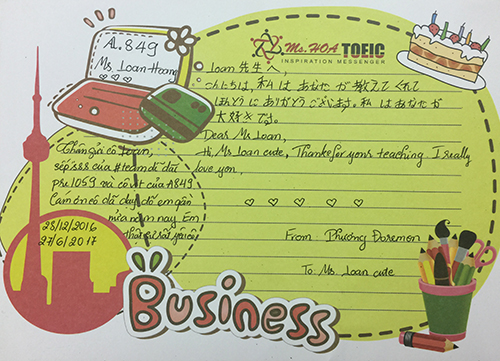 A.849
Ms. Loan Hoang
Ms. HOA TOEIC
INSPIRATION MESSENGER
Loan 先生へ,
こんにちは, 私は あなたが 教えて くれて
ほんとうに ありがとう ございます。私は あなたが
大好きです。
Dears Ms. Loan,
Hi, Ms. Loan cute, Thanks for yours teaching I really
love you,
♡ ♡ ♡ ♡
From Phương Doremon
To: Ms. Loan cute
Chân gửi cô Loan,
sếp sss của #team dã dài
pre 1059 và cô vịt của A849
Cám ơn cô đã dạy dỗ em gần
nửa năm nay. Em
thật sự rất yêu cô
28/12/2016
27/6/2017
Business